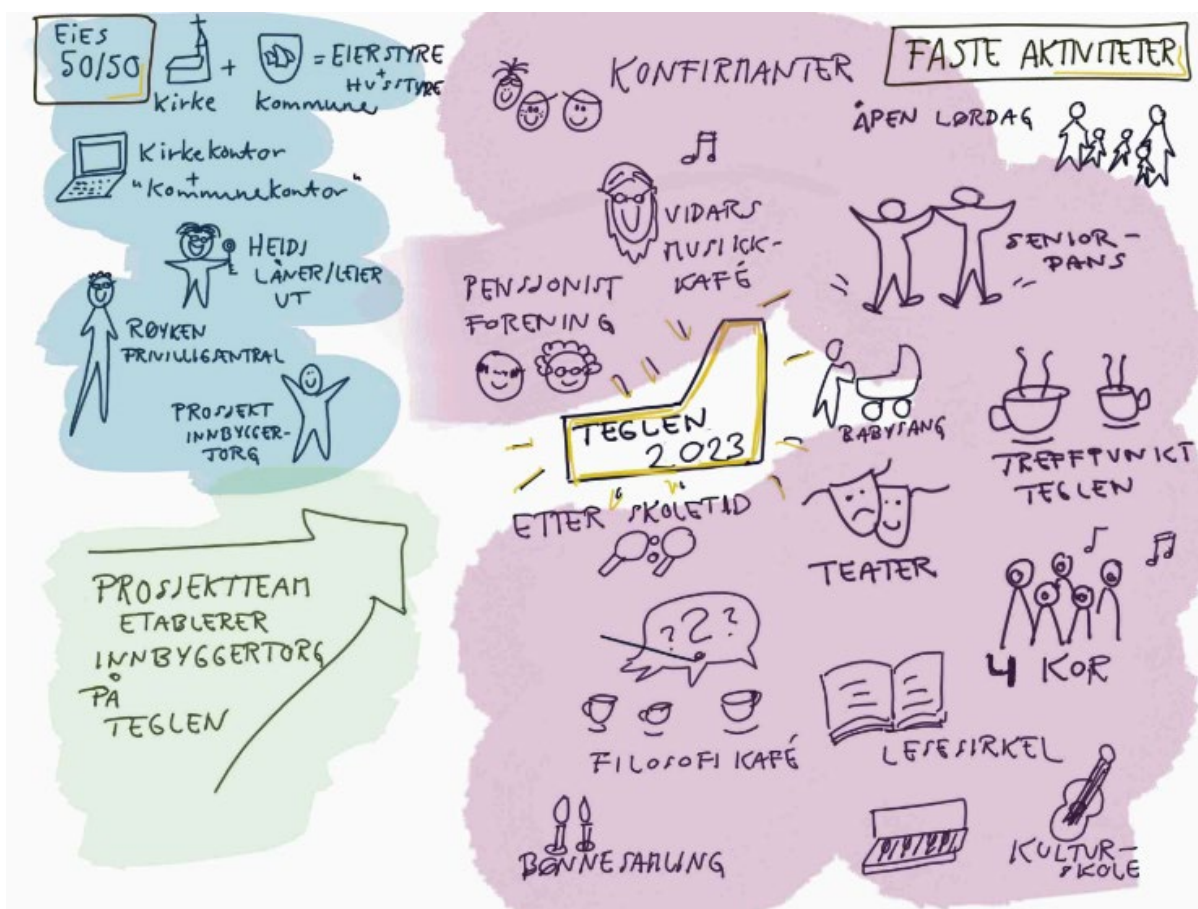 EiES
50/50
+
= EIERSTYRE
+
HUSSTYRE
Kirke
Kommune
Kirkekontor
+
"Kommunekontor"
HEIDI
LÅNER/LEIER
UT
RØYKEN
FRIVILLIGSENTRAL
PROSJEKT
INNBYGGER-
TORG
PROSJEKTTEAM
ETABLERER
INNBYGGERTORG
PÅ
TEGLEN
KONFIRMANTER
FASTE AKTIVITETER
ÅPEN LØRDAG
VIDARS
MUSIKK-
KAFÉ
SENIOR-
DANS
PENSJONIST
FORENING
TEGLEN
2023
BABYSANG
TREFFPUNKT
TEGLEN
ETTER SKOLETID
TEATER
? ? ?
4 KOR
FILOSOFI KAFÉ
LESESIRKEL
BØNNESAMLING
KULTUR-
SKOLE